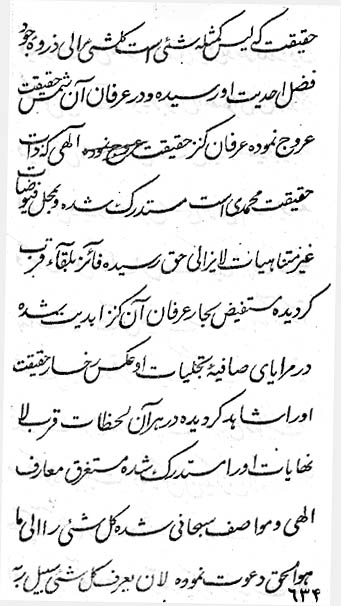 حقیقت کے لیس کمثله شئ است کلشئ الی ذروه وجود
فضل احدیت او رسیده و در عرفان آن شمس حقیقت
عروج نموده عرفان کنز حقیقت عروج نموده الهی که ذات
حقیقت محمدی است مستدرک شده و بمجل فیوضات
غیر متناهیات لایزالی حق رسیده فائز بلقاء قرب
کردیده مستفیض بحار عرفان آن کنز ابدیت شده
در مرایای صافیهٔ تجلیات او عکس رخسار حقیقت
اورا شاهد کردیده در هر آن لحظات قرب لا
نهایات اورا مستدرک شده مستغرق معارف
الهی و مواصف سبحانی شده کل شئ را الی ما
هو الحق دعوت نموده لان یعرف کل شئ سبیل ربه
٦٣۴